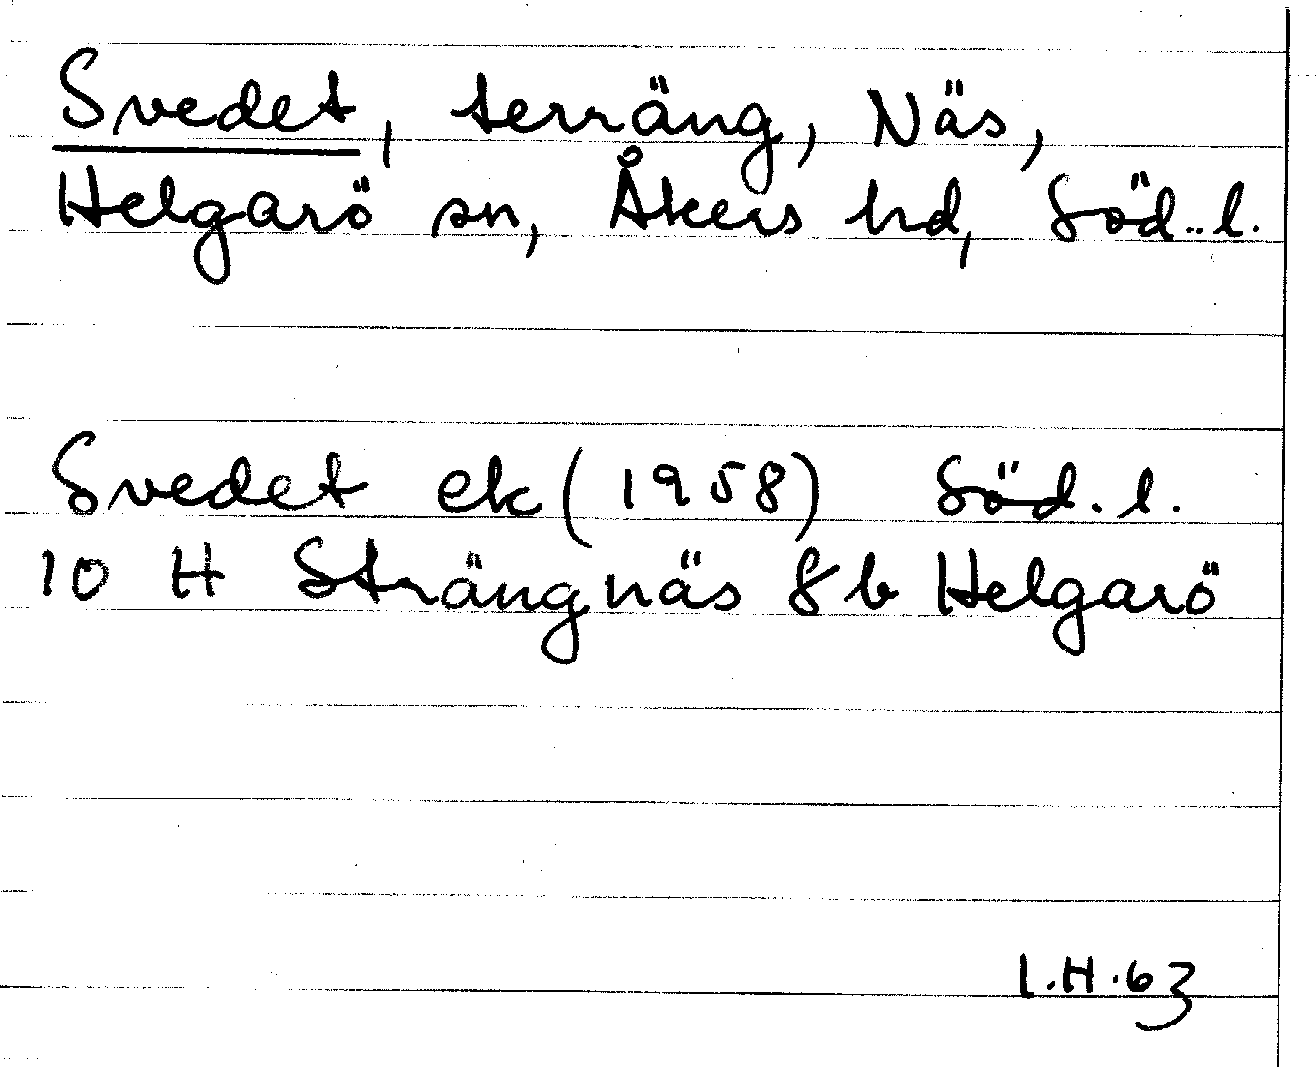 Svedet, terräng, Näs,
Helgarö sn, Åkers hd, Söd. l.
Svedet ek (1958) Söd. l.
10 H Strängnäs 8 b Helgarö
I.H.63